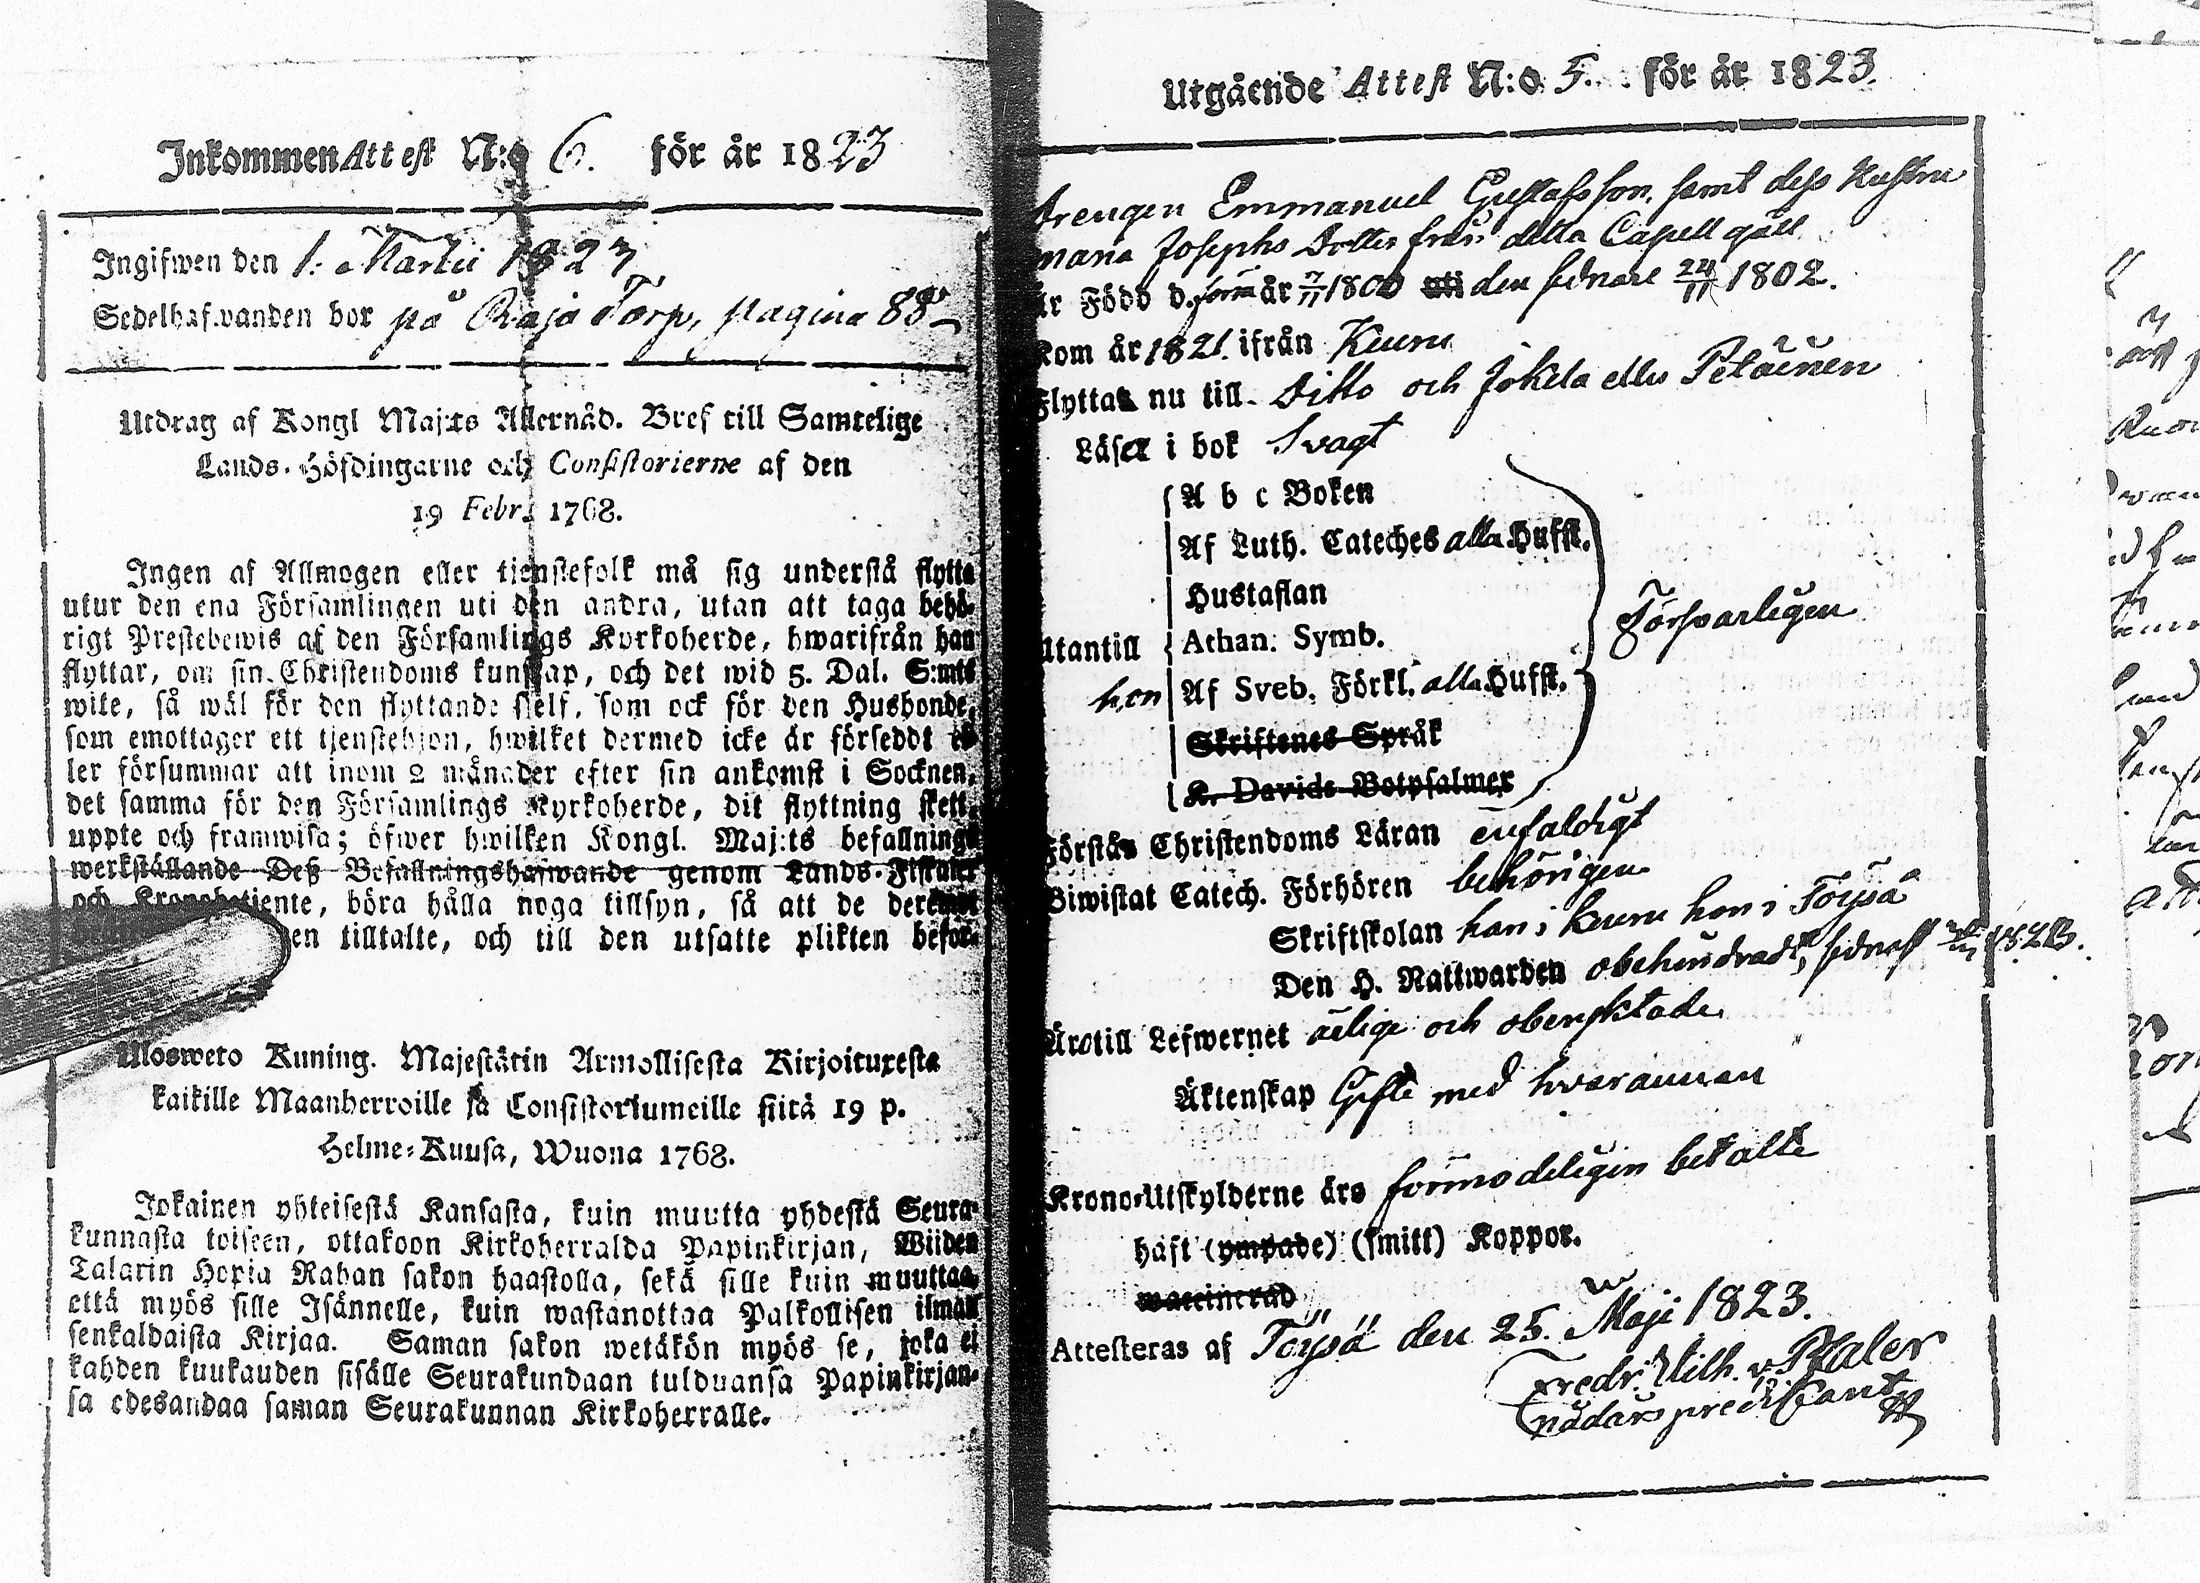 Inkommen Attest N:o 6. för år 1823
Ingifwen den 1. Martii 1823
Sedelhafwanden bor på Raja Torp, pagina 88
Utdrag af Kongl Maj:ts Allernåd. Bref till Samtelige
Lands-Höfdingarne och Consistorierne af den
19 Febr. 1768.
Ingen af Allmogen eller tienstefolk må sig understå flytta
utur den ena Församlingen uti den andra, utan att taga behö-
rigt Prestebewis af den Församlings Kyrkoherde, hwarifrån han
flyttar, om sin Christendoms kunskap, och det wid 5. Dal. S:mts
wite, så wäl för den flyttande sjelf, som ock för den Husbonde,
som emottager ett tjenstehjon, hwilket dermed icke är förseddt el-
ler försummar att inom 2 månader efter sin ankomst i Socknen,
det samma för den Församlings Kyrkoherde, dit flyttning skett,
uppte och framwisa; öfwer hwilken Kongl. Maj:ts befallnings
werkställande Deß Befallningshafwande genom Lands-Fiskaler
och Kronobetiente, böra hålla noga tillsyn, så att de deremot
en tilltalte, och till den utsatte plikten befor-
Ulosweto Kuning. Majestätin Armollisesta Kirjoituxesta
kaikille Maanherroille ja Consistoriumeille siitä 19 p.
Helme-Kuusa, Wuona 1768.
Jokainen yhteisestä Kansasta, kuin muutta yhdestä Seura-
kunnasta toiseen, ottakoon Kirkoherralda Papinkirjan, Wiiden
Talarin Hopia Rahan sakon haastolla, sekä sille kuin muuttaa,
että myös sille Isännelle, kuin wastanottaa Palkollisen ilman
senkaldaista Kirjaa. Saman sakon wetäkön myös se, joka ei
kahden kuukauden sisälle Seurakundaan tulduansa Papinkirjan-
sa edesandaa saman Seurakunnan Kirkoherralle.
Utgående Attest N:o 5. för år 1823.
Drengen Emmanuel Gustafsson, samt dess Hustru
Maria Josephs Dotter från detta Capell gäll
är Född d. förra år 7/11 1800 uti den sednare 24/11 1802.
Kom år 1821. ifrån Kuru
Flyttat nu till Ditto och Jokela eller Petäinen
Läser i bok Svagt
A b c Boken
Af Luth. Cateches alla Hufst.
Hustaflan
Utantill Athan. Symb. Försvarligen
hon Af Sveb. Förkl. alla Hufst.
Skriftenes Språk
K. Davids Botpsalmer
Förstån Christendoms Läran enfaldigt
Biwistat Catech. Förhören behörigen
Skriftskolan han i Kuru hon i Töysä
Den H. Nattwarden obehindradt, sednast 1823.
Äro till Lefwernet ärlige och oberyktade
Äktenskap Gifte med hvarannan
Krono-Utskylderne äro förmodeligen betalte
haft (ympade) (smitt) Koppor.
waccinerad
Attesteras af Töysä den 25. Maji 1823.
Fredr. Wilh. v. Pfaler
Nådårs predikant